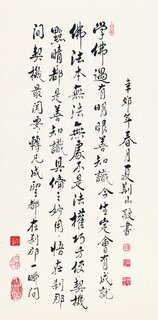 學佛遇有明眼善知識今生定會有成就
佛法本無法無處不是法權巧方便契機
點睛都是善知識具備之妙用悟在剎那
間契機最關要轉凡成聖都在剎那瞬間
辛卯年春月夏荊山敬書